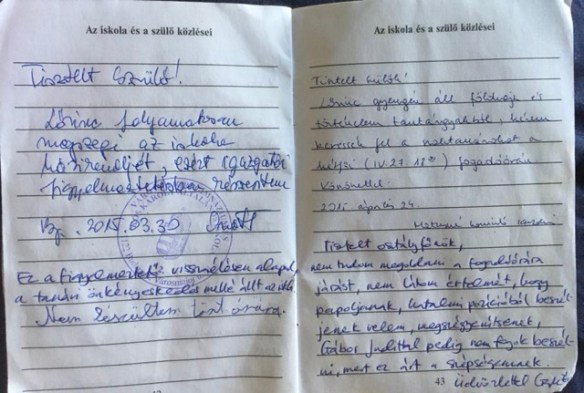 Az iskola és a szülő közlései
Tisztelt Szülő!
Lőrinc folyamatosan
megszegi az iskola
házirendjét, ezért igazgatói
figyelmeztetésben részesítem
Bp. 2015.03.30
Ez a figyelmeztetés visszaélésen alapul,
a tanári önkényeskedés mellé állt az
Nem készültem
Az iskola és a szülő közlései
Tisztelt Szülők!
Lőrinc gyengén áll földrajz és
történelem tantárgyakból, kérem
keressék fel a szaktanárokat a
(IV. 27. 18°°) fogadóórán
Köszönettel:
2015 április 24.
Tisztelt osztályfőnök,
nem tudom megoldani a fogadóórára
járást, nem látom értelmét, hogy
papoljanak, hatalmi pozícióból beszél-
jenek velem, megszégyenítsenek,
Gábor Judittal pedig nem fogok beszél-
ni, mert ez árt a szépségemnek.
43 Üdvözlettel